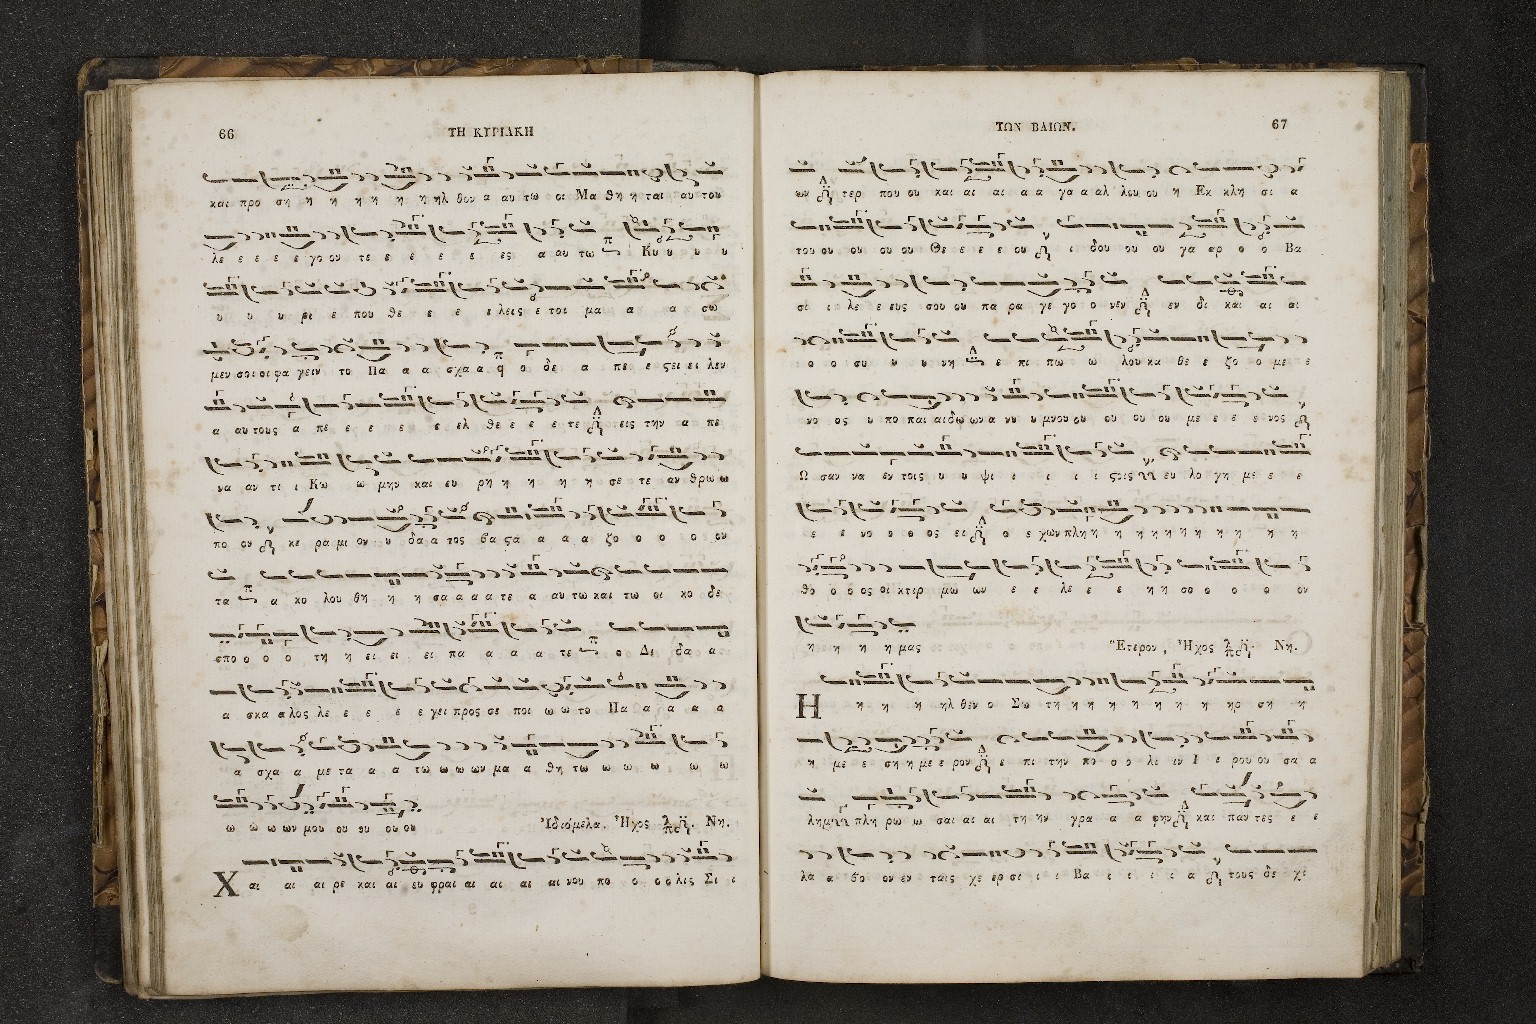 66
ΤΗ ΚΥΡΙΑΚΗ
και προ ση η η η η η ηλ θον α αυ τω οι Μα θη η ται αυ του
λε ε ε ε ε γο ον τε ε ε ε ε ες α αυ τω Κυ υ υ υ
υ υ υ ρι ε που θε ε ε ε λεις ε τοι μα α α σω
μεν σοι οι φα γειν το Πα α α σχα α ο δε α πε ε ςει ει λεν
α αυ τους α πε ε ε ε ε ελ θε ε ε ε τε εις την α πε
να αν τι ι Κω ω μην και ευ ρη η η η η η σε τε αν θρω ω
πο ον κε ρα μι ον υ δα α τος βα ςα α α α ζο ο ο ο ον
τα α κο λου θη η η σα α α α τε α αυ τω και τω οι κο δε
σπο ο ο ο τη η ει ει ει πα α α α τε ο Δι δα α
α σκα α λος λε ε ε ε ε γει προς σε ποι ω ω το Πα α α α α
α σχα α με τα α α τω ω ω ων μα α θη τω ω ω ω ω ω
ω ω ω ων μου ου ου ου ου
Ἰδιόμελα, Ἦχος Νη.
Χ αι αι αι ρε και αι ευ φραι αι αι αι αι νου πο ο ο ο λις Σι ι
ΤΩΝ ΒΑΙΩΝ.
67
ων τερ που ου και αι αι α α γα α αλ λου ου η Εκ κλη σι α
του ου ου ου ου Θε ε ε ε ου ι δου ου ου γα αρ ο ο Βα
σι ι λε ε ευς σου ου πα ρα γε γο ο νεν εν δι και αι αι
ο ο συ υ υ νη ε πι πω ω λου κα θε ε ζο ο με ε
νο ος υ πο παι αι δω ων α νυ υ μνου ου ου ου ου με ε ε ε νος
Ω σαν να εν τοις υ υ ψι ι ι ι ι ςοις ευ λο γη με ε ε
ε ε νο ο ο ος ει ο ε χων πλη η η η η η η η η η η
θο ο ο ος οι κτιρ μω ων ε ε λε ε ε η η σο ο ο ο ον
η η η η μας
Ἕτερον, Ἦχος Νη.
Η η η η ηλ θεν ο Σω τη η η η η η η η ηρ ση η
η με ε ση η με ε ρον ε πι την πο ο ο λι ιν Ι ε ρου ου σα α
λημ πλη ρω ω σαι αι αι τη ην γρα α α φην και παν τες ε ε
λα α βο ον εν ταις χε ερ σι ι ι Βα ι ι ι ι α τους δε χι